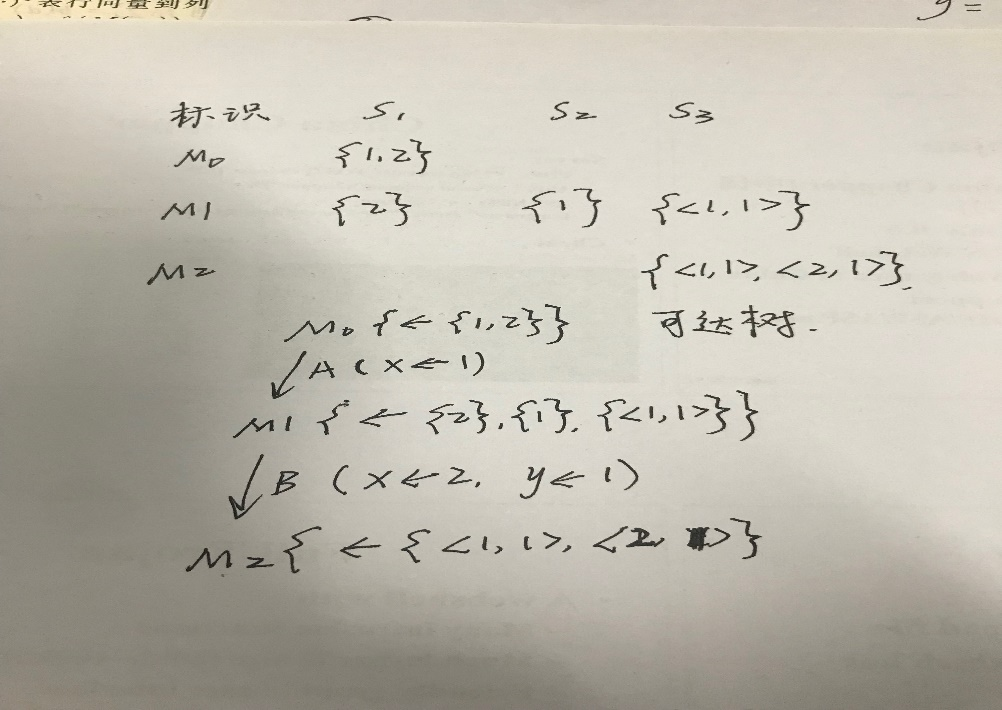 表行向量到列
y =
标识 S₁ S₂ S₃
M₀ {1,2}
M1 {2} {1} {<1,1>}
M2 {<1,1>, <2,1>}.
M₀ {← {1,2}} 可达树.
↙ A (x←1)
M1 {← {2},{1}, {<1,1>}}
↙ B (x←2, y←1)
M2 { ← {<1,1>, <2, >}